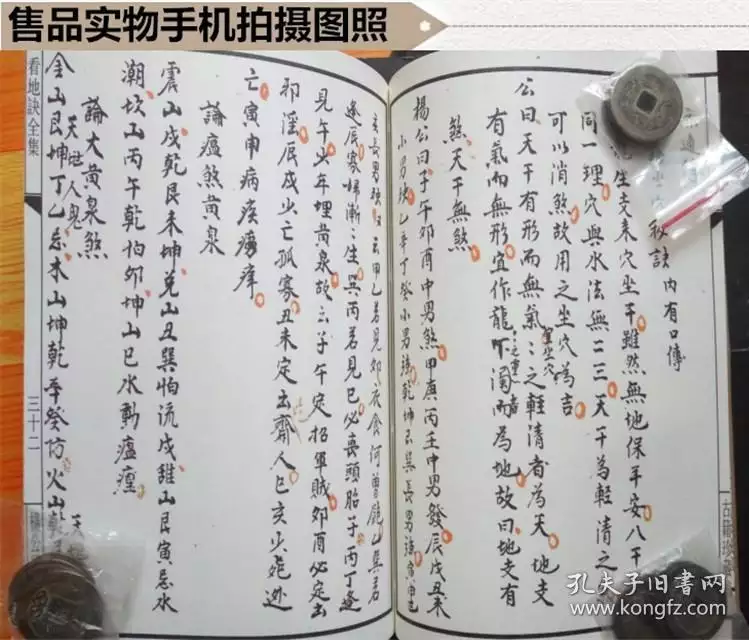 售品实物手机拍摄图照
秘訣 內有口傳
龍生支來穴坐干雖然無地保平安八干
同一理穴與水法無二三天干為輕清之
可以消煞故用之坐穴為吉
公曰天干有形而無氣之輕清者為天地支
有氣而無形宜作龍不濁而為地故曰地支有
煞天干無煞
楊公曰子午卯酉中男煞甲庚丙壬中男發辰戌丑未
小男殃乙辛丁癸小男強乾坤艮巽長男強寅申巳
亥長男殃又云甲乙若見卯衣食何曾飽乙巽若
逢辰寡婦漸漸生巽丙若見巳必喪頭胎子丙丁逢
見午少年埋黃泉故云子午定招軍賊卯酉必定出
邪淫辰戌少亡孤寡丑未定出齋人巳亥少死逃
亡寅申病疾癆瘴
論瘟煞黃泉
震山戌乾艮未坤兌山丑巽怕流戌離山艮寅忌水
潮坎山丙午乾怕卯坤山巳水動瘟瘽
論大黃泉煞
天世人鬼
金山艮坤丁乙忌木山坤乾辛癸防火山乾
看地訣全集
三十二
楊公
古籍珍
孔夫子旧书网
www.kongfz.com